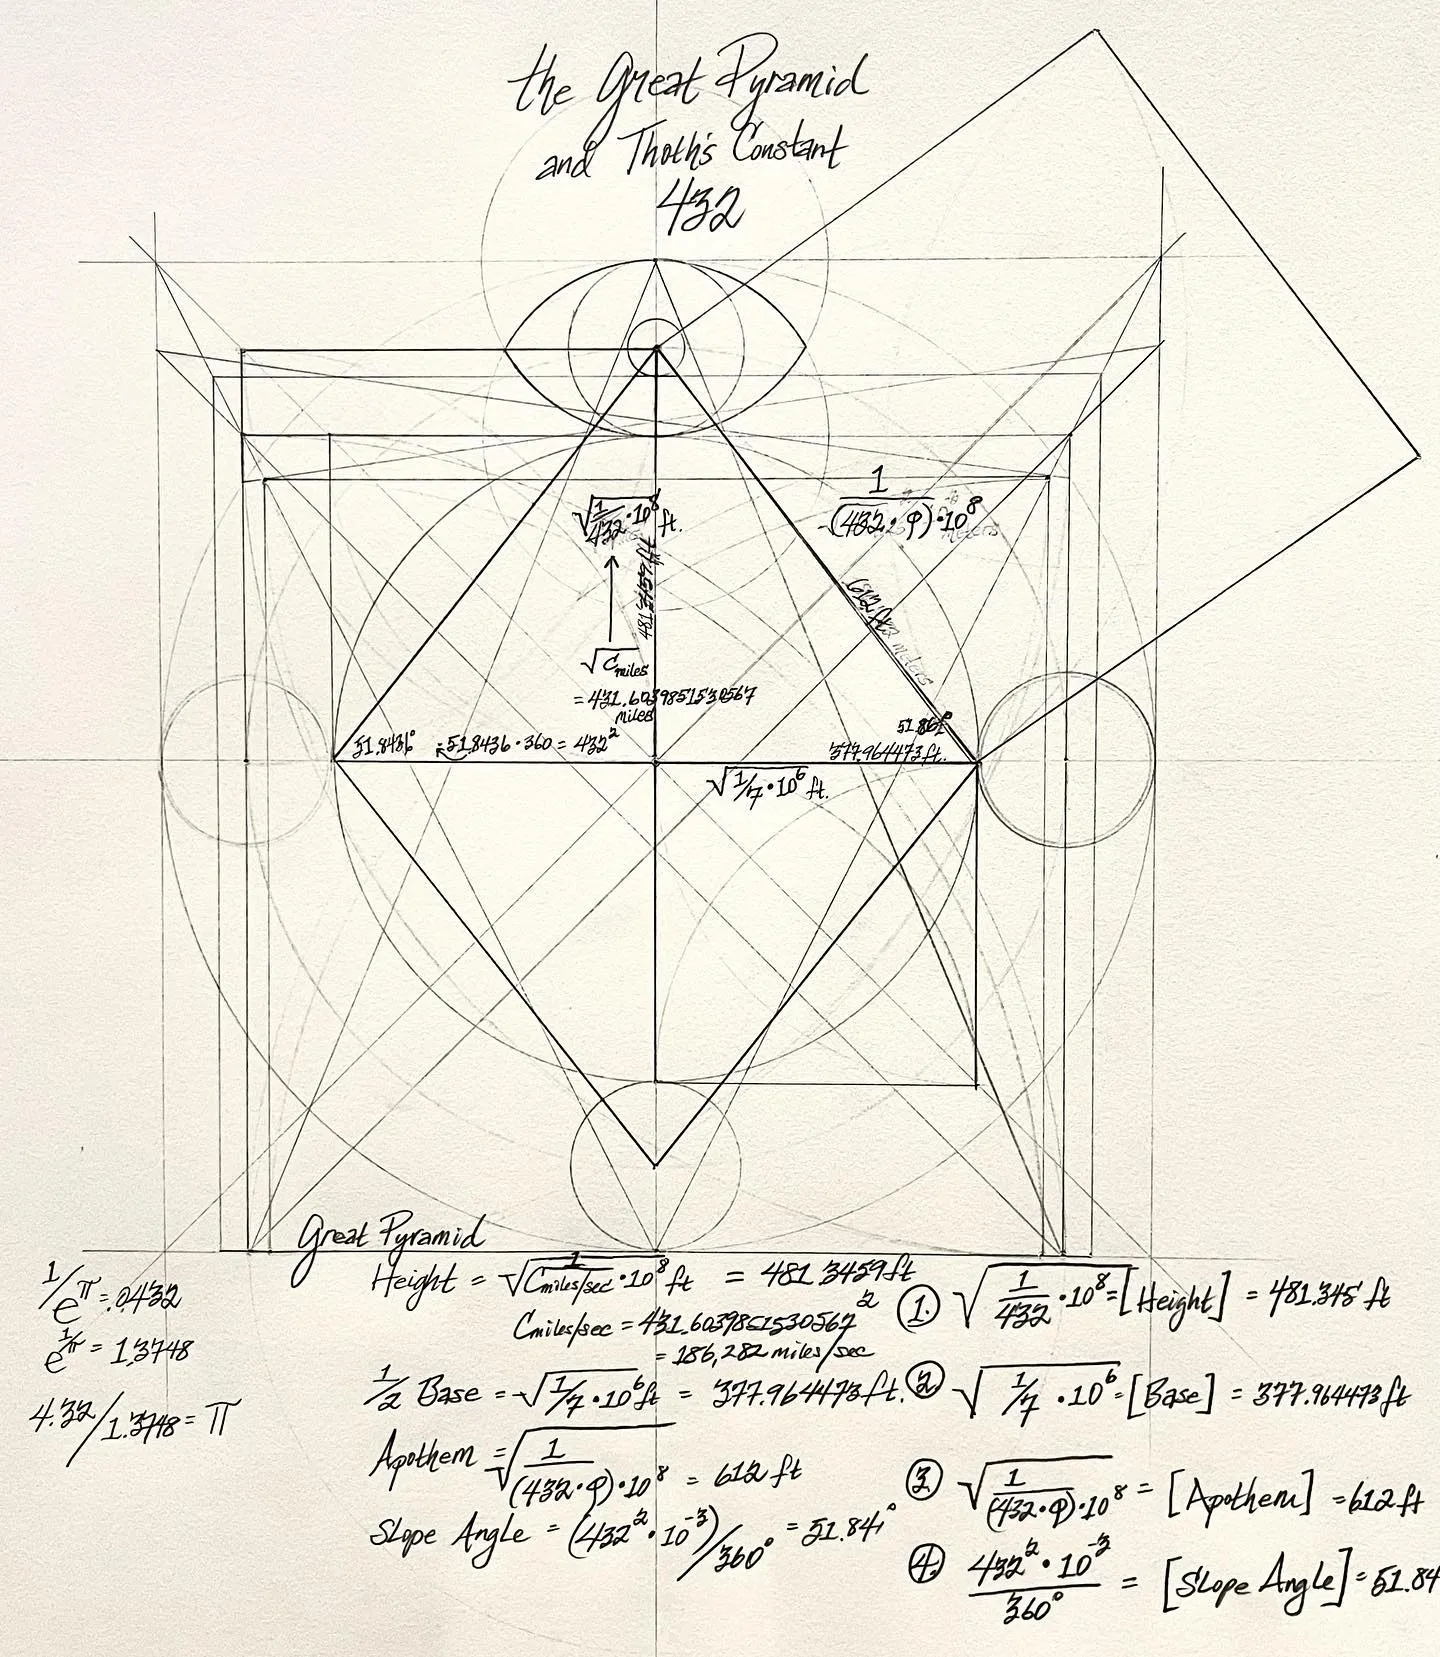 the Great Pyramid
and Thoth's Constant
432
√1/432 · 10⁸ ft.
√C miles
= 431.6039851530567
miles
1/(432 · φ) · 10⁸
51.8436°
51.8436 · 360 = 432²
377.964473 ft.
√1/7 · 10⁶ ft.
Great Pyramid
Height = √1/Cmiles/sec · 10⁸ ft = 481.3459 ft
Cmiles/sec = 431.6039851530567²
= 186,282 miles/sec
1/2 Base = √1/7 · 10⁶ ft = 377.964473 ft.
Apothem = √1/(432 · φ) · 10⁸ = 612 ft
Slope Angle = (432² · 10⁻³)/360° = 51.841°
1/e^π = .0432
e^1/π = 1.3748
4.32/1.3748 = π
1. √1/432 · 10⁸ = [Height] = 481.345 ft
2 √1/7 · 10⁶ = [Base] = 377.964473 ft
3 √1/(432 · φ) · 10⁸ = [Apothem] = 612 ft
4. 432² · 10⁻³/360° = [Slope Angle] = 51.84